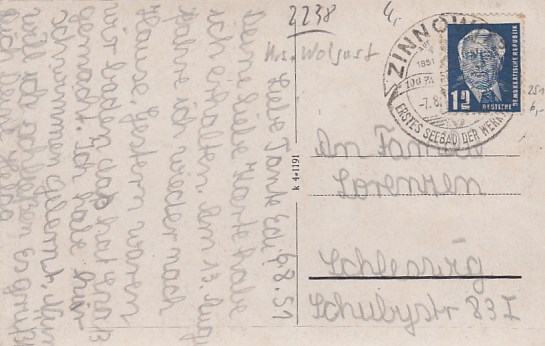 2238
4,-
Krs. Wolgast
ZINNOW
1851
100 JA
-7.8.
ERSTES SEEBAD DER WERK
12
DEUTSCHE
DEMOKRATISCHE REPUBLIK
251
6,-
k 4•1191
An Familie
Lorenzen
Schleswig
Schubystr 83I
6.8.51
Liebe Tante
Deine liebe Karte habe
ich erhalten. Am 13. Aug
fahre ich wieder nach
Hause. Gestern waren
wir baden, das hat Spaß
gemacht. Ich habe hier
schwimmen gelernt. Nun
will ich
Dich Deine Helga